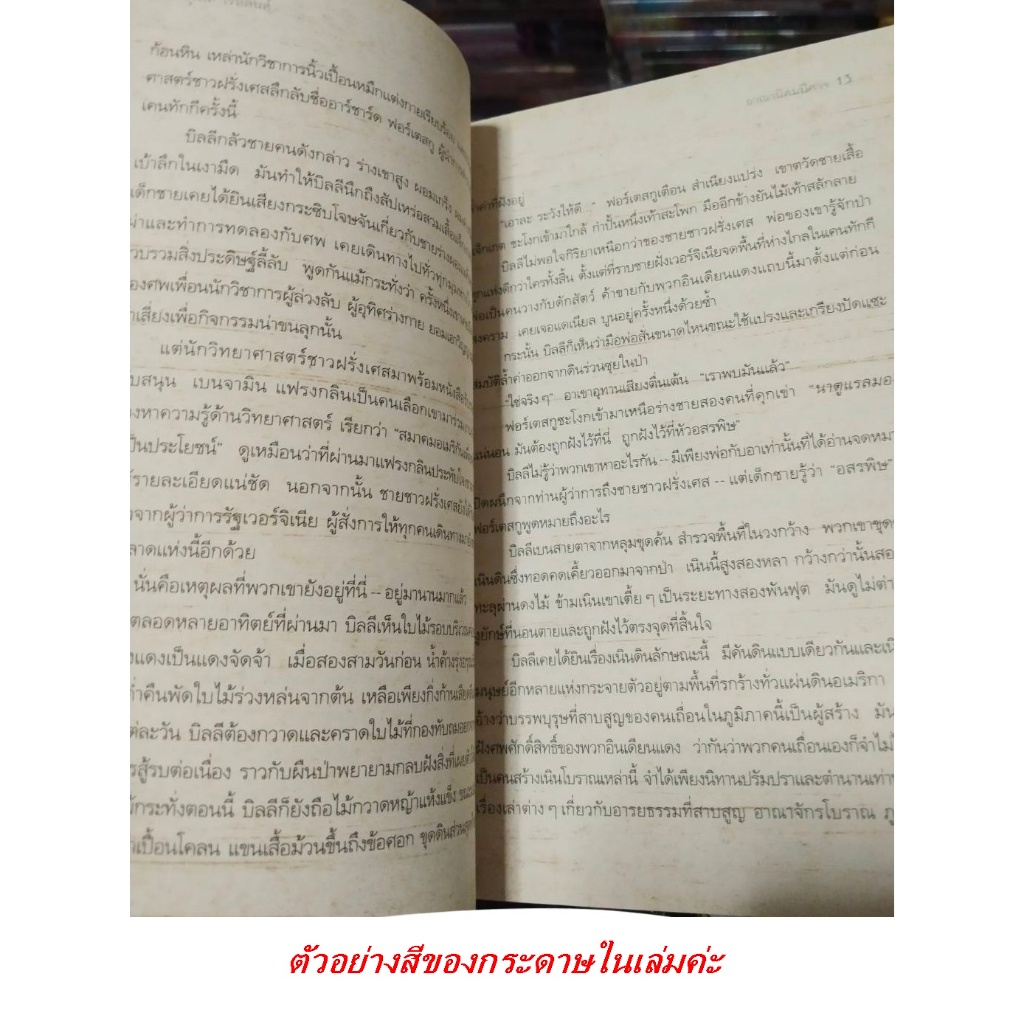 ก้อนหิน เหล่านักวิชาการนิ้วเปื้อนหมึกแต่งกายเรียบร้อย
ศาสตร์ชาวฝรั่งเศสลึกลับชื่ออาร์ชาร์ด ฟอร์เตสกู ผู้นำ
เคนทักกีครั้งนี้
บิลลีกลัวชายคนดังกล่าว ร่างเขาสูง ผอมเกร็ง
เบ้าลึกในเงามืด มันทำให้บิลลีนึกถึงสัปเหร่อสวมเสื้อ
เด็กชายเคยได้ยินเสียงกระซิบโจษจันเกี่ยวกับชายร่างผอม
ผ่าและทำการทดลองกับศพ เคยเดินทางไปทั่วทุกมุม
วบรวมสิ่งประดิษฐ์ลี้ลับ พูดกันแม้กระทั่งว่า ครั้งหนึ่งเขา
องศพเพื่อนนักวิชาการผู้ล่วงลับ ผู้อุทิศร่างกาย ยอมเอาวิญญาณ
าเสี่ยงเพื่อกิจกรรมน่าขนลุกนั้น
แต่นักวิทยาศาสตร์ชาวฝรั่งเศสมาพร้อมหนังสือ
บสนุน เบนจามิน แฟรงกลินเป็นคนเลือกเขามาร่วม
งหาความรู้ด้านวิทยาศาสตร์ เรียกว่า "สมาคมอเมริกัน
ป็นประโยชน์" ดูเหมือนว่าที่ผ่านมาแฟรงกลินประทับใจ
ร้รายละเอียดแน่ชัด นอกจากนั้น ชายชาวฝรั่งเศส
จากผู้ว่าการรัฐเวอร์จิเนีย ผู้สั่งการให้ทุกคนเดินทาง
ลาดแห่งนี้อีกด้วย
นั่นคือเหตุผลที่พวกเขายังอยู่ที่นี่ -- อยู่มานานมากแล้ว
ตลอดหลายอาทิตย์ที่ผ่านมา บิลลีเห็นใบไม้รอบบริเวณ
งแดงเป็นแดงจัดจ้า เมื่อสองสามวันก่อน น้ำค้าง
ค่ำคืนพัดใบไม้ร่วงหล่นจากต้น เหลือเพียงกิ่งก้าน
ต่ละวัน บิลลีต้องกวาดและคราดใบไม้ที่กองทับถม
รสู้รบต่อเนื่อง ราวกับผืนป่าพยายามกลบฝังสิ่งที่
ม้กระทั่งตอนนี้ บิลลีก็ยังถือไม้กวาดหญ้าแห้งแข็ง
เปื้อนโคลน แขนเสื้อม้วนขึ้นถึงข้อศอก ขุดดินส่วน
อาณานิคมปีศาจ 13
ค่าที่ฝังอยู่
"เอาละ ระวังให้ดี..." ฟอร์เตสกูเตือน สำเนียงแปร่ง เขาตวัดชายเสื้อ
ชะโงกเข้ามาใกล้ กำปั้นหนึ่งเท้าสะโพก มืออีกข้างยันไม้เท้าสลักลาย
บิลลีไม่พอใจกิริยาเหนือกว่าของชายชาวฝรั่งเศส พ่อของเขารู้จักป่า
ทุกแห่งดีกว่าใครทั้งสิ้น ตั้งแต่ที่ราบชายฝั่งเวอร์จิเนียจดพื้นที่ห่างไกลในเคนทักกี
พ่อเป็นคนวางกับดักสัตว์ ค้าขายกับพวกอินเดียนแดงแถบนี้มาตั้งแต่ก่อน
สงคราม เคยเจอแดเนียล บูนอยู่ครั้งหนึ่งด้วยซ้ำ
กระนั้น บิลลีก็เห็นว่ามือพ่อสั่นขนาดไหนขณะใช้แปรงและเกรียงปัดแซะ
สมบัติล้ำค่าออกจากดินร่วนซุยในป่า
"ใช่จริงๆ" อาเขาอุทานเสียงตื่นเต้น "เราพบมันแล้ว"
ฟอร์เตสกูชะโงกเข้ามาเหนือร่างชายสองคนที่คุกเข่า "นาตูแรลมอง
แน่นอน มันต้องถูกฝังไว้ที่นี่ ถูกฝังไว้ที่หัวอสรพิษ"
บิลลีไม่รู้ว่าพวกเขาหาอะไรกัน -- มีเพียงพ่อกับอาเท่านั้นที่ได้อ่านจดหมา
ปิดผนึกจากท่านผู้ว่าการถึงชายชาวฝรั่งเศส -- แต่เด็กชายรู้ว่า "อสรพิษ"
ฟอร์เตสกูพูดหมายถึงอะไร
บิลลีเบนสายตาจากหลุมขุดค้น สำรวจพื้นที่ในวงกว้าง พวกเขาขุด
เนินดินซึ่งทอดคดเคี้ยวออกมาจากป่า เนินนี้สูงสองหลา กว้างกว่านั้นสอ
ทะลุผ่านดงไม้ ข้ามเนินเขาเตี้ยๆ เป็นระยะทางสองพันฟุต มันดูไม่ต่า
งูยักษ์ที่นอนตายและถูกฝังไว้ตรงจุดที่สิ้นใจ
บิลลีเคยได้ยินเรื่องเนินดินลักษณะนี้ มีคันดินแบบเดียวกันและเนิ
มนุษย์อีกหลายแห่งกระจายตัวอยู่ตามพื้นที่รกร้างทั่วแผ่นดินอเมริกา
อ้างว่าบรรพบุรุษที่สาบสูญของคนเถื่อนในภูมิภาคนี้เป็นผู้สร้าง มัน
ฝังศพศักดิ์สิทธิ์ของพวกอินเดียนแดง ว่ากันว่าพวกคนเถื่อนเองก็จำไม่
เป็นคนสร้างเนินโบราณเหล่านี้ จำได้เพียงนิทานปรัมปราและตำนานเท่า
เรื่องเล่าต่างๆ เกี่ยวกับอารยธรรมที่สาบสูญ อาณาจักรโบราณ ภู
ตัวอย่างสีของกระดาษในเล่มค่ะ